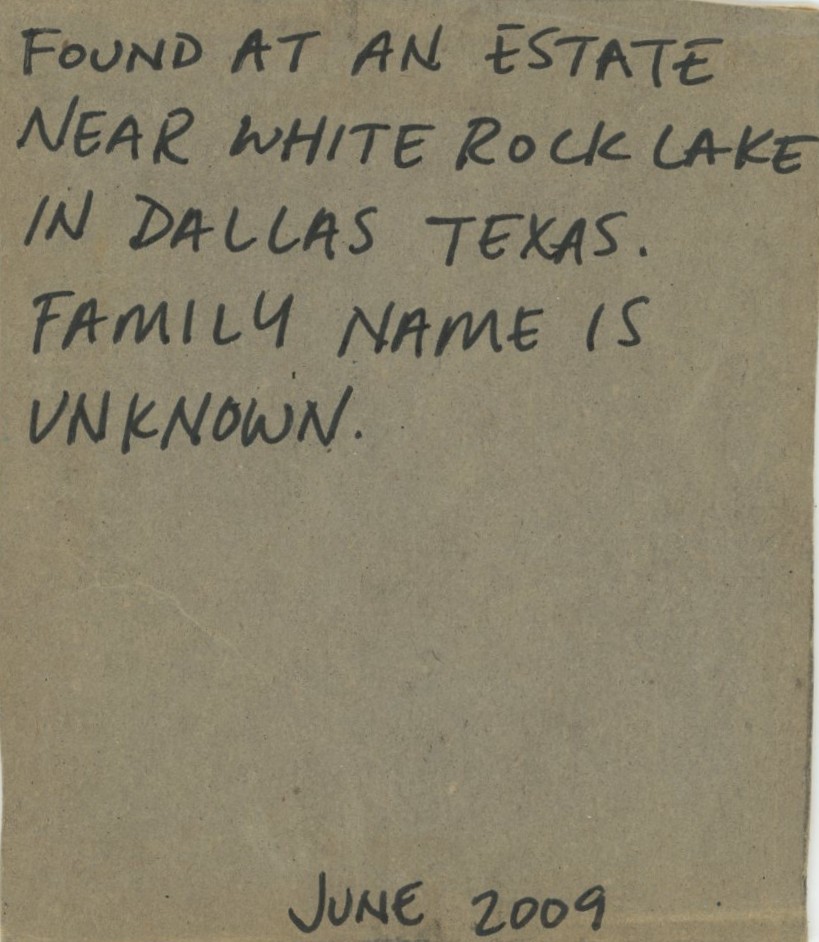 FOUND AT AN ESTATE
NEAR WHITE ROCK LAKE
IN DALLAS TEXAS.
FAMILY NAME IS
UNKNOWN.
JUNE 2009